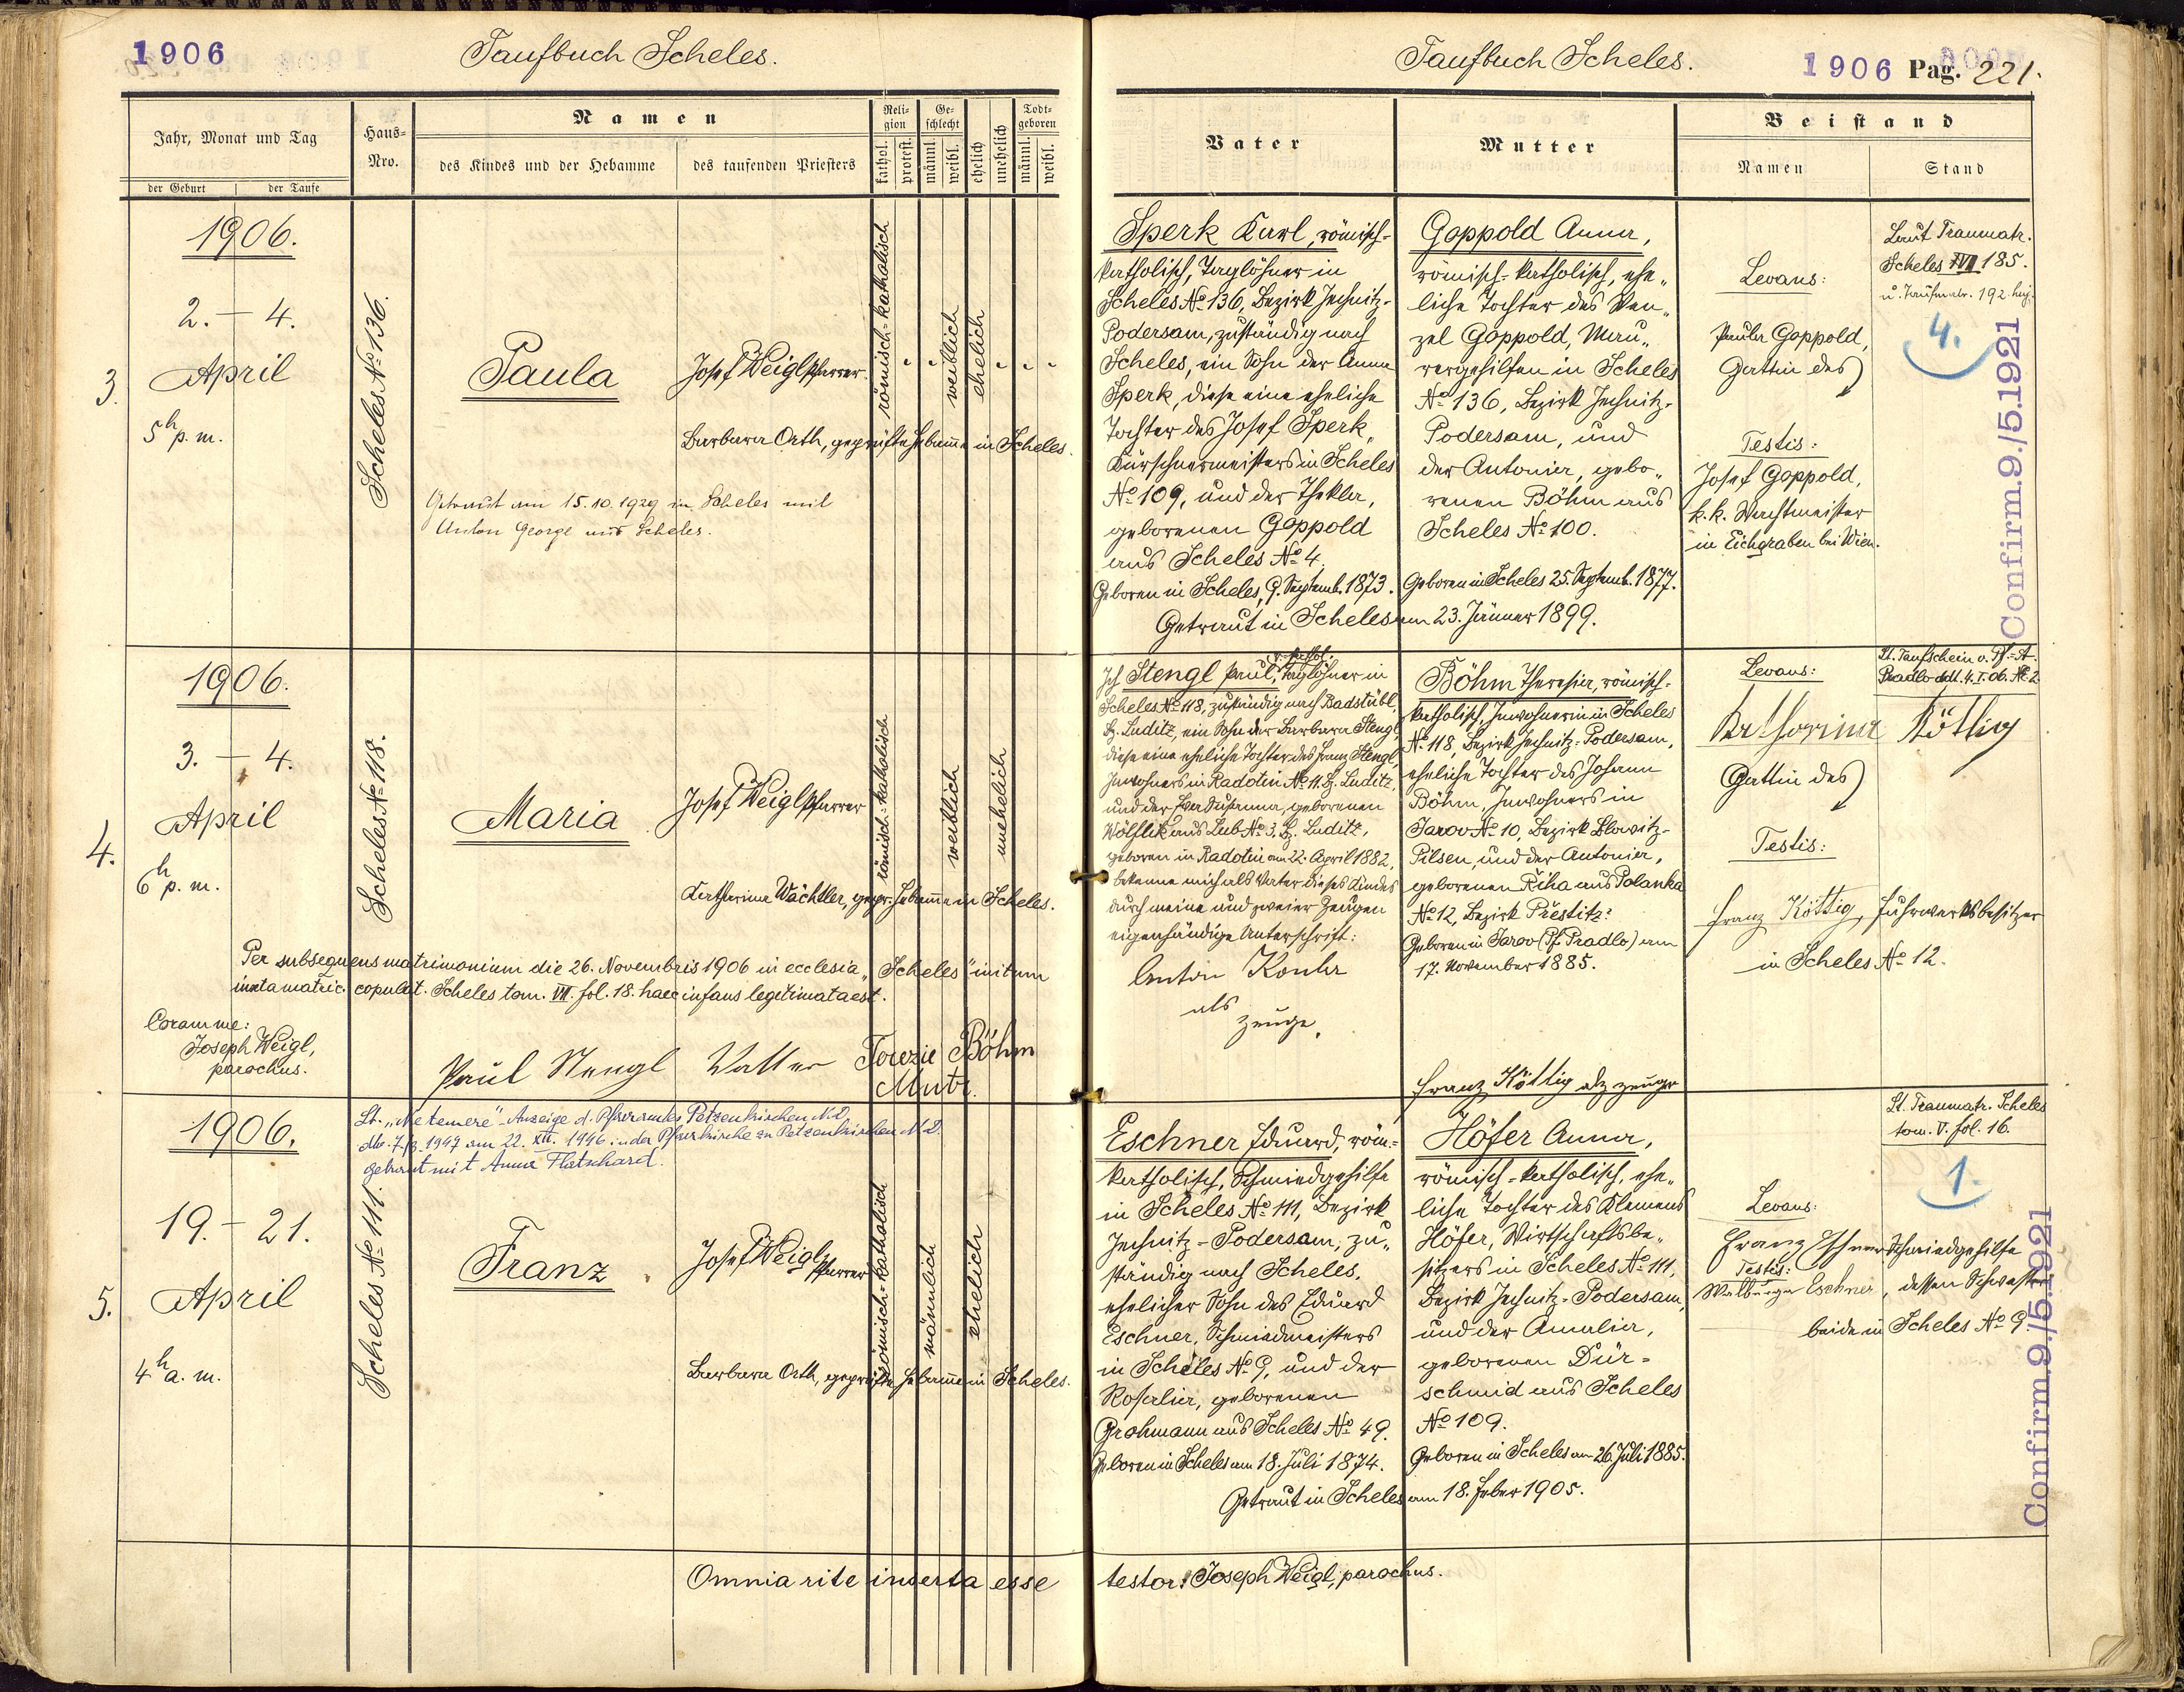 1906
Taufbuch Scheles.
Jahr, Monat und Tag
der Geburt
der Taufe
Haus-
Nro.
Namen
des Kindes und der Hebamme
des taufenden Priesters
Reli-
gion
kathol.
protest.
Ge-
schlecht
männl.
weibl.
ehelich
unehelich
Todt-
geboren
männl.
weibl.
3.
1906.
2. – 4.
April
5h p. m.
Scheles No 136.
Paula
Josef Weigl Pfarrer
römisch-katholisch
weiblich
ehelich
Barbara Orth, geprüfte Hebamme in Scheles.
Getraut am 15.10.1929 in Scheles mit
Anton George aus Scheles.
4.
1906.
3. – 4.
April
6h p. m.
Scheles No 118.
Maria
Josef Weigl Pfarrer
römisch-katholisch
weiblich
unehelich
Katharina Wächtler, gepr. Hebamme in Scheles.
Per subsequens matrimonium die 26. Novembris 1906 in ecclesia „Scheles" initum
iuxta matric. copulat. Scheles tom. VII. fol. 18. haec infans legitimata est.
Coram me:
Joseph Weigl,
parochus.
Paul Stengl Vatter Terezie Böhm
Mutr.
5.
1906.
Lt. „Ne temere"-Anzeige d. Pfarramtes Petzenkirchen N.D.
getraut mit Anna
19. – 21.
April
4h a. m.
Scheles No 111.
Franz
Josef Weigl Pfarrer
römisch-katholisch
männlich
ehelich
Barbara Orth, geprüfte Hebamme in Scheles.
Omnia rite inserta esse
Taufbuch Scheles.
1906 Pag. 221.
Vater
Mutter
Beistand
Namen
Stand
Sperk Karl, römisch-
katholisch, Taglöhner in
Scheles No 136, Bezirk Jechnitz-
Podersam, zuständig nach
Scheles, ein Sohn der Anna
Sperk, diese eine eheliche
Tochter des Josef Sperk,
Kürschnermeisters in Scheles
No 109, und der Thekla,
geborenen Goppold
aus Scheles No 4.
Geboren in Scheles, 9. Septemb. 1873.
Goppold Anna,
römisch-katholisch, ehe„
liche Tochter des Wen„
zel Goppold, Mau„
rergehilfen in Scheles
No 136, Bezirk Jechnitz-
Podersam, und
der Antonia, gebo„
renen Böhm aus
Scheles No 100.
Geboren in Scheles 25. Septemb. 1877.
Getraut in Scheles am 23. Jänner 1899.
Levans:
Paula Goppold,
Gattin des
Testis:
Josef Goppold,
k. k. Wachtmeister
in Eichgraben bei Wien.
Laut Traumatr.
Scheles 185.
4.
Confirm. 9./5.1921
Ich Stengl Paul, r. kathol. Taglöhner in
Scheles No 118, zuständig nach Badstübl,
Bz. Luditz, ein Sohn der Barbara Stengl,
diese eine eheliche Tochter des Franz Stengl,
Inwohners in Radotin No 11. Bz. Luditz,
und der geborenen
Wölflik aus Lub No 3. Bz. Luditz,
geboren in Radotin am 22. April 1882,
bekenne mich als Vater dieses Kindes
durch meine und zweier Zeugen
eigenhändige Unterschrift:
Anton
als
Zeuge.
Böhm Theresia, römisch-
katholisch, Inwohnerin in Scheles
No 118, Bezirk Jechnitz-Podersam,
eheliche Tochter des Johann
Böhm, Inwohners in
Jarov No 10, Bezirk Blowitz-
Pilsen, und der Antonia,
geborenen Říha aus Polanka
No 12, Bezirk Přestitz.
Geboren in Jarov (Pf. Pradlo) am
17. November 1885.
Franz Köttig alz zeuge
Levans:
Katharina Köttig
Gattin des
Testis:
Franz Köttig, Fuhrwerksbesitzer
in Scheles No 12.
Lt. Taufschein v. Pf.-A.
Pradlo ddt. 4.I.06. No 2
Eschner Eduard, röm.-
katholisch, Schmiedgehilfe
in Scheles No 111, Bezirk
Jechnitz-Podersam, zu„
ständig nach Scheles,
ehelicher Sohn des Eduard
Eschner, Schmiedmeisters
in Scheles No 9, und der
Rosalia, geborenen
Grohmann aus Scheles No 49.
Geboren in Scheles am 18. Juli 1874.
Höfer Anna,
römisch-katholisch, ehe„
liche Tochter des Klemens
Höfer, Wirtschaftsbe„
sitzers in Scheles No 111,
Bezirk Jechnitz-Podersam,
und der Amalia,
geborenen Dür-
schmid aus Scheles
No 109.
Geboren in Scheles am 26. Juli 1885.
Getraut in Scheles am 18. Feber 1905.
Levans:
Franz Schmiedgehilfe
Testis:
Walburga Eschner, dessen Schwester
beide in Scheles No 9.
Lt. Traumatr. Scheles
tom. V. fol. 16.
1.
Confirm. 9./5.1921
testor: Joseph Weigl, parochus.